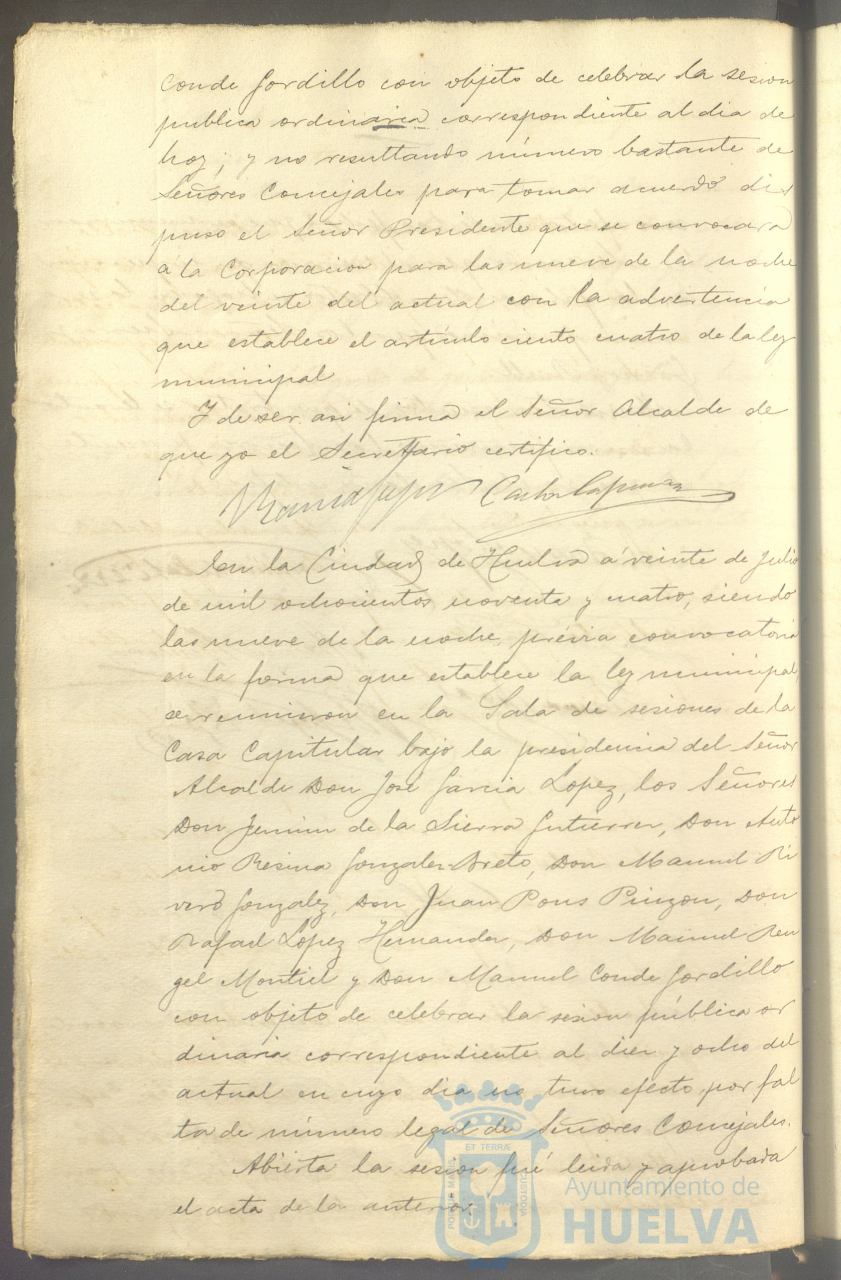 Conde Gordillo con objeto de celebrar la sesion
publica ordinaria correspondiente al dia de
hoy; y no resultando número bastante de
Señores Concejales para tomar acuerdo dis
puso el Señor Presidente que se convocara
a la Corporacion para las nueve de la noche
del veinte del actual con la advertencia
que establece el artículo ciento cuatro de la ley
municipal
Y de ser asi firma el Señor Alcalde de
que yo el Secretario certifico.
En la Ciudad de Huelva á veinte de Julio
de mil ochocientos noventa y cuatro, siendo
las nueve de la noche, prévia convocatoria
en la forma que establece la ley municipal,
se reunieron en la Sala de sesiones de la
Casa Capitular bajo la presidencia del Señor
Alcalde Don José Garcia Lopez, los Señores
Don de la Sierra Gutierrez, Don Anto
nio Resina Gonzalez Don Manuel Ri
vero Gonzalez, Don Juan Pons Pinzon, Don
Rafael Lopez Hernandez, Don Manuel Ren
gel Montiel y Don Manuel Conde Gordillo
con objeto de celebrar la sesion pública or
dinaria correspondiente al diez y ocho del
actual en cuyo dia no tuvo efecto por fal
ta de número legal de Señores Concejales.
Abierta la sesion fué leida y aprobada
el acta de la anterior.
PORTUS MARIS ET TERRÆ CUSTODIA
Ayuntamiento de
HUELVA